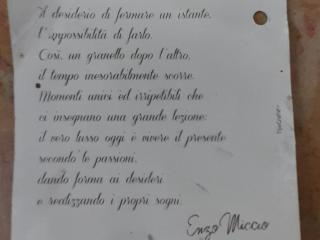 Il desiderio di fermare un istante,
l'impossibilità di farlo.
Così, un granello dopo l'altro,
il tempo inesorabilmente scorre.
Momenti unici ed irripetibili che
ci insegnano una grande lezione:
il vero lusso oggi è vivere il presente
secondo le passioni,
dando forma ai desideri
e realizzando i propri sogni.
Enzo Miccio